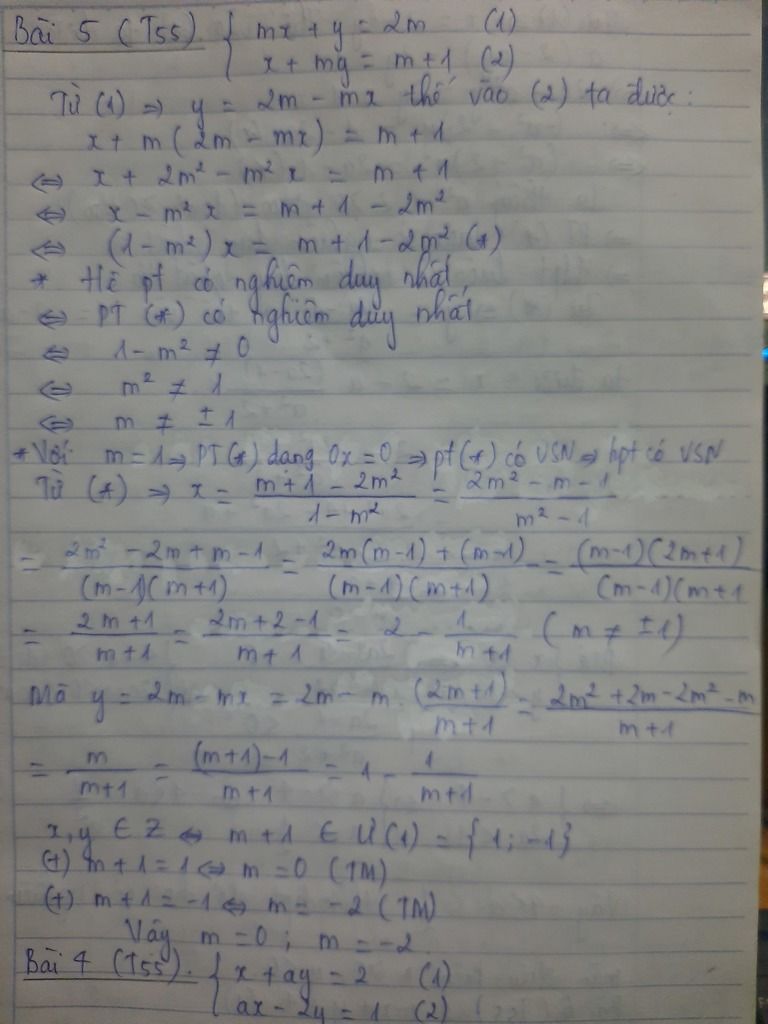 Bài 5 (T55) { mx + y = 2m (1)
x + my = m+1 (2)
Từ (1) ⇒ y = 2m - mx thế vào (2) ta được:
x + m(2m - mx) = m + 1
⇔ x + 2m² - m²x = m + 1
⇔ x - m²x = m + 1 - 2m²
⇔ (1 - m²)x = m + 1 - 2m² (*)
* Hệ pt có nghiệm duy nhất
⇔ PT (*) có nghiệm duy nhất
⇔ 1 - m² ≠ 0
⇔ m² ≠ 1
⇔ m ≠ ±1
* Với m = 1 ⇒ PT(*) dạng 0x = 0 ⇒ pt(*) có VSN ⇒ hpt có VSN
Từ (*) ⇒ x = (m + 1 - 2m²)/(1 - m²) = (2m² - m - 1)/(m² - 1)
= (2m² - 2m + m - 1)/((m-1)(m+1)) = (2m(m-1) + (m-1))/((m-1)(m+1)) = ((m-1)(2m+1))/((m-1)(m+1
= (2m+1)/(m+1) = (2m+2-1)/(m+1) = 2 - 1/(m+1) (m ≠ ±1)
Mà y = 2m - mx = 2m - m.(2m+1)/(m+1) = (2m² + 2m - 2m² - m)/(m+1)
= m/(m+1) = ((m+1)-1)/(m+1) = 1 - 1/(m+1)
x, y ∈ Z ⇔ m + 1 ∈ Ư(1) = {1; -1}
(+) m + 1 = 1 ⇔ m = 0 (TM)
(+) m + 1 = -1 ⇔ m = -2 (TM)
Vậy m = 0; m = -2.
Bài 4 (T55). { x + ay = 2 (1)
ax - 2y = 1 (2)